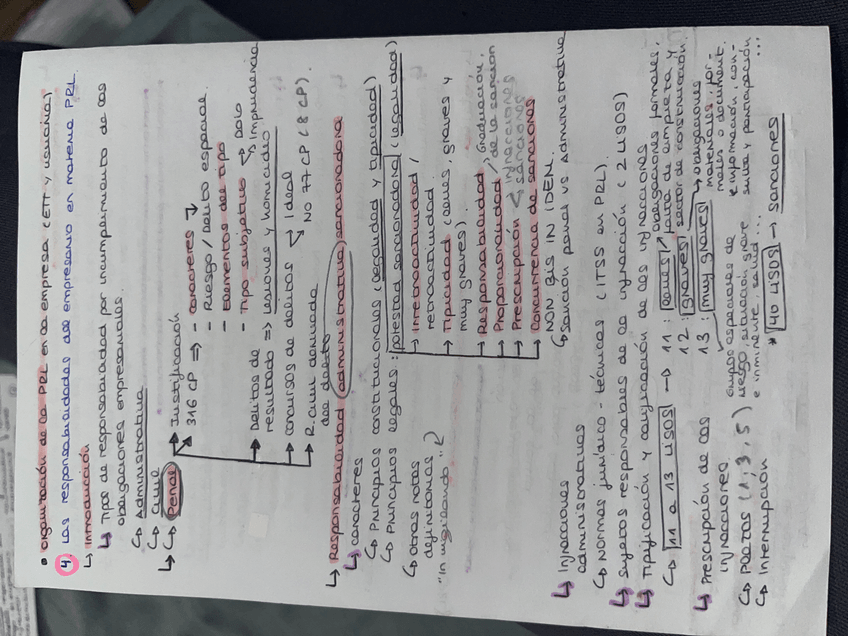 • Organización de la PRL en la empresa (ETT y usuaria)
4) Las responsabilidades del empresario en materia PRL.
↳ Introducción
↳ Tipos de responsabilidad por incumplimiento de las
obligaciones empresariales.
↳ Administrativa
↳ Civil
↳ Penal → Justificación
→ 316 CP ⇒ - caracteres ↓
- Riesgo / Delito especial.
- Elementos del tipo
- Tipo subjetivo → Dolo
→ Imprudencia
→ Delitos de
resultado ⇒ lesiones y homicidio
→ concursos de delitos → Ideal
NO 77 CP (8 CP).
→ R. civil derivada
del delito
↳ Responsabilidad administrativa sancionadora
↳ caracteres
↳ Principios constitucionales (legalidad y tipicidad)
↳ Principios legales: potestad sancionadora (legalidad)
→ Irretroactividad /
retroactividad
→ Tipicidad (leves, graves y
muy graves).
→ Responsabilidad
→ Proporcionalidad / Graduación
de la sanción
→ Prescripción infracciones
sanciones
→ Concurrencia de sanciones
NON BIS IN IDEM.
↳ Sanción penal vs Administrativa
↳ Otras notas
definitorias
"In vigilando"
↳ Infracciones
administrativas
↳ Normas jurídico-técnicas (ITSS en PRL).
↳ Sujetos responsables de la infracción (2 LISOS)
↳ Tipificación y calificación de las infracciones
↳ 11 a 13 LISOS → 11: leves / obligaciones formales,
falta de limpieza y
sector de construcción.
12: graves → obligaciones
materiales, for-
males o document.
e información, con-
sulta y participación
...
13: muy graves
grupos especiales de
riesgo, situación grave
e inminente, salud...
↳ Prescripción de las
infracciones
↳ Plazos (1, 3, 5)
↳ Interrupción
* 40 LISOS → Sanciones